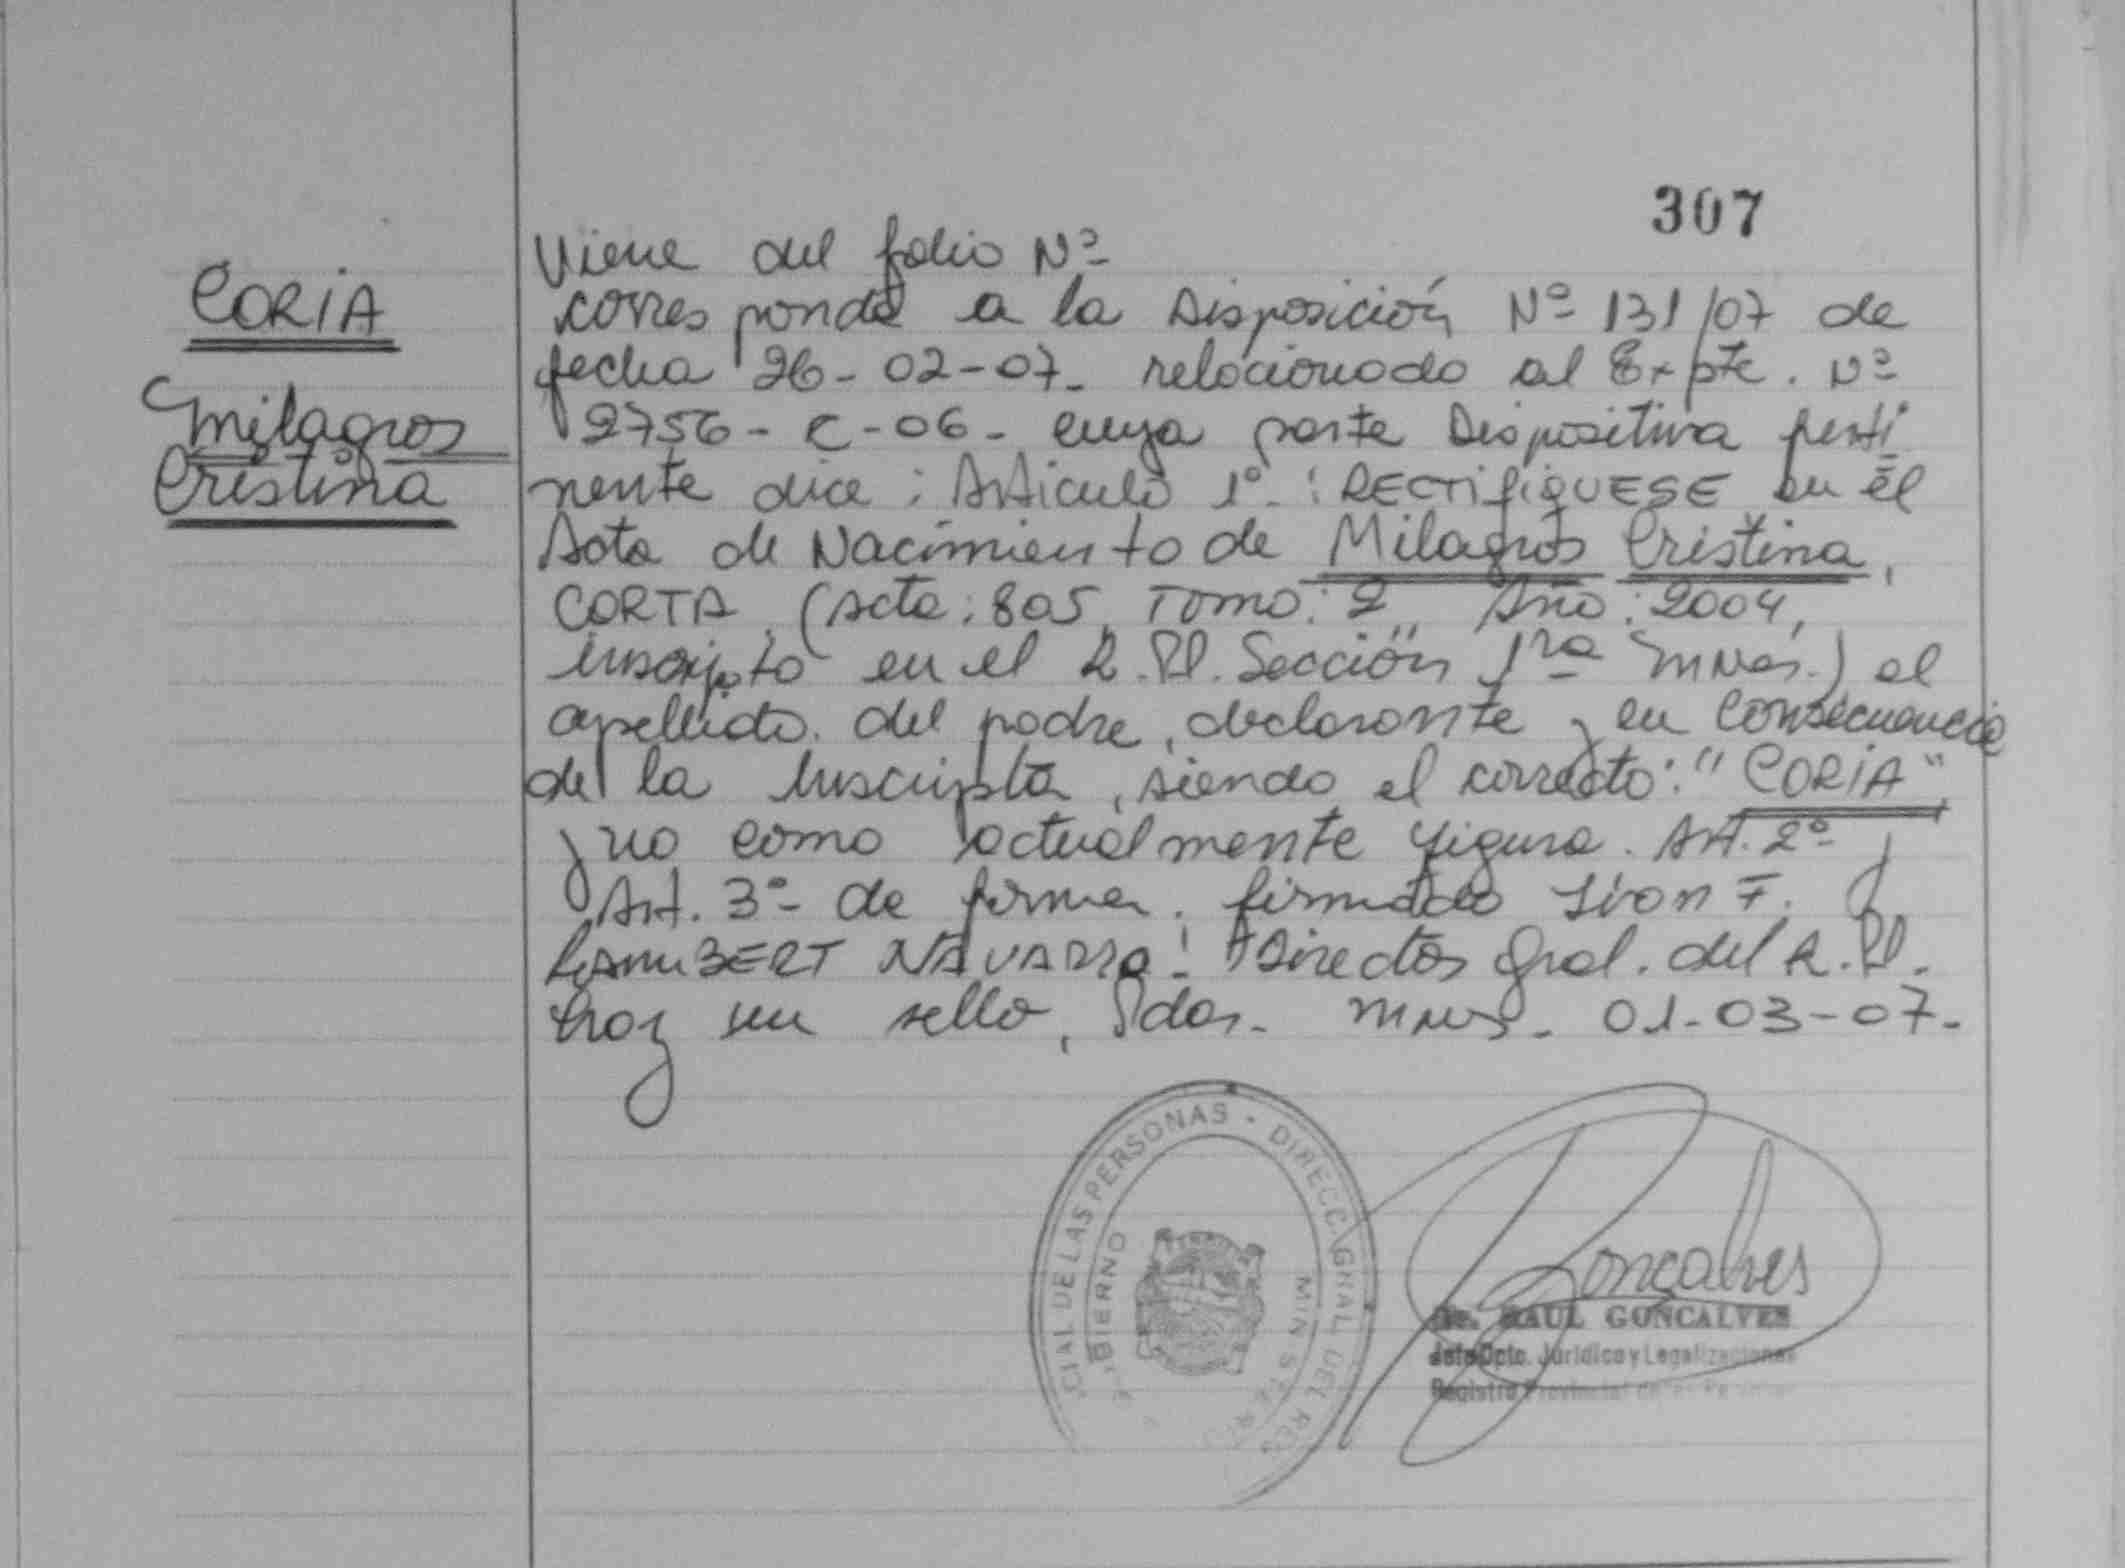 307
CORIA
Milagros
Cristina
Viene del folio Nº
corresponde a la Disposición Nº 131/07 de
fecha 26-02-07- relacionado al Expte. Nº
2756-C-06- cuya parte Dispositiva perti
nente dice: Articulo 1º-: RECTIFIQUESE en el
Acta de Nacimiento de Milagros Cristina,
CORTA, (Acta: 805, Tomo: 2, Año: 2004,
inscripto en el R.P. Sección 1ra Mnes.) el
apellido del padre, declarante y en consecuencia
de la inscripta, siendo el correcto: "CORIA"
y no como actualmente figura. Art. 2º y
Art. 3º- de forma. firmado Ivon F.
LAMBERT NAVARRO! Director Gral. del R.P.
hay un sello, Pdas- Mnes- 01-03-07-
CIAL DE LAS PERSONAS - DIRECC. GRAL. DEL REG
BIERNO
MINISTER
Goncalves
Dr. RAUL GONCALVES
Jefe Dpto. Jurídico y Legalizaciones
Registro Provincial de las Personas